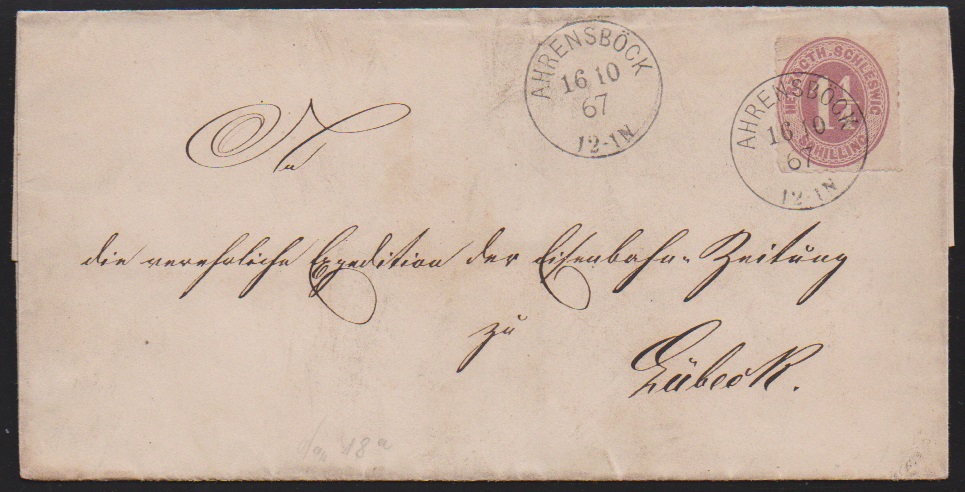 AHRENSBÖCK
16 10
67
12-1N
HERZOGTH. SCHLESWIG
1¼
SCHILLING
AHRENSBÖCK
16 10
67
12-1N
An
die verehrliche Expedition der Eisenbahn-Zeitung
zu
Lübeck.